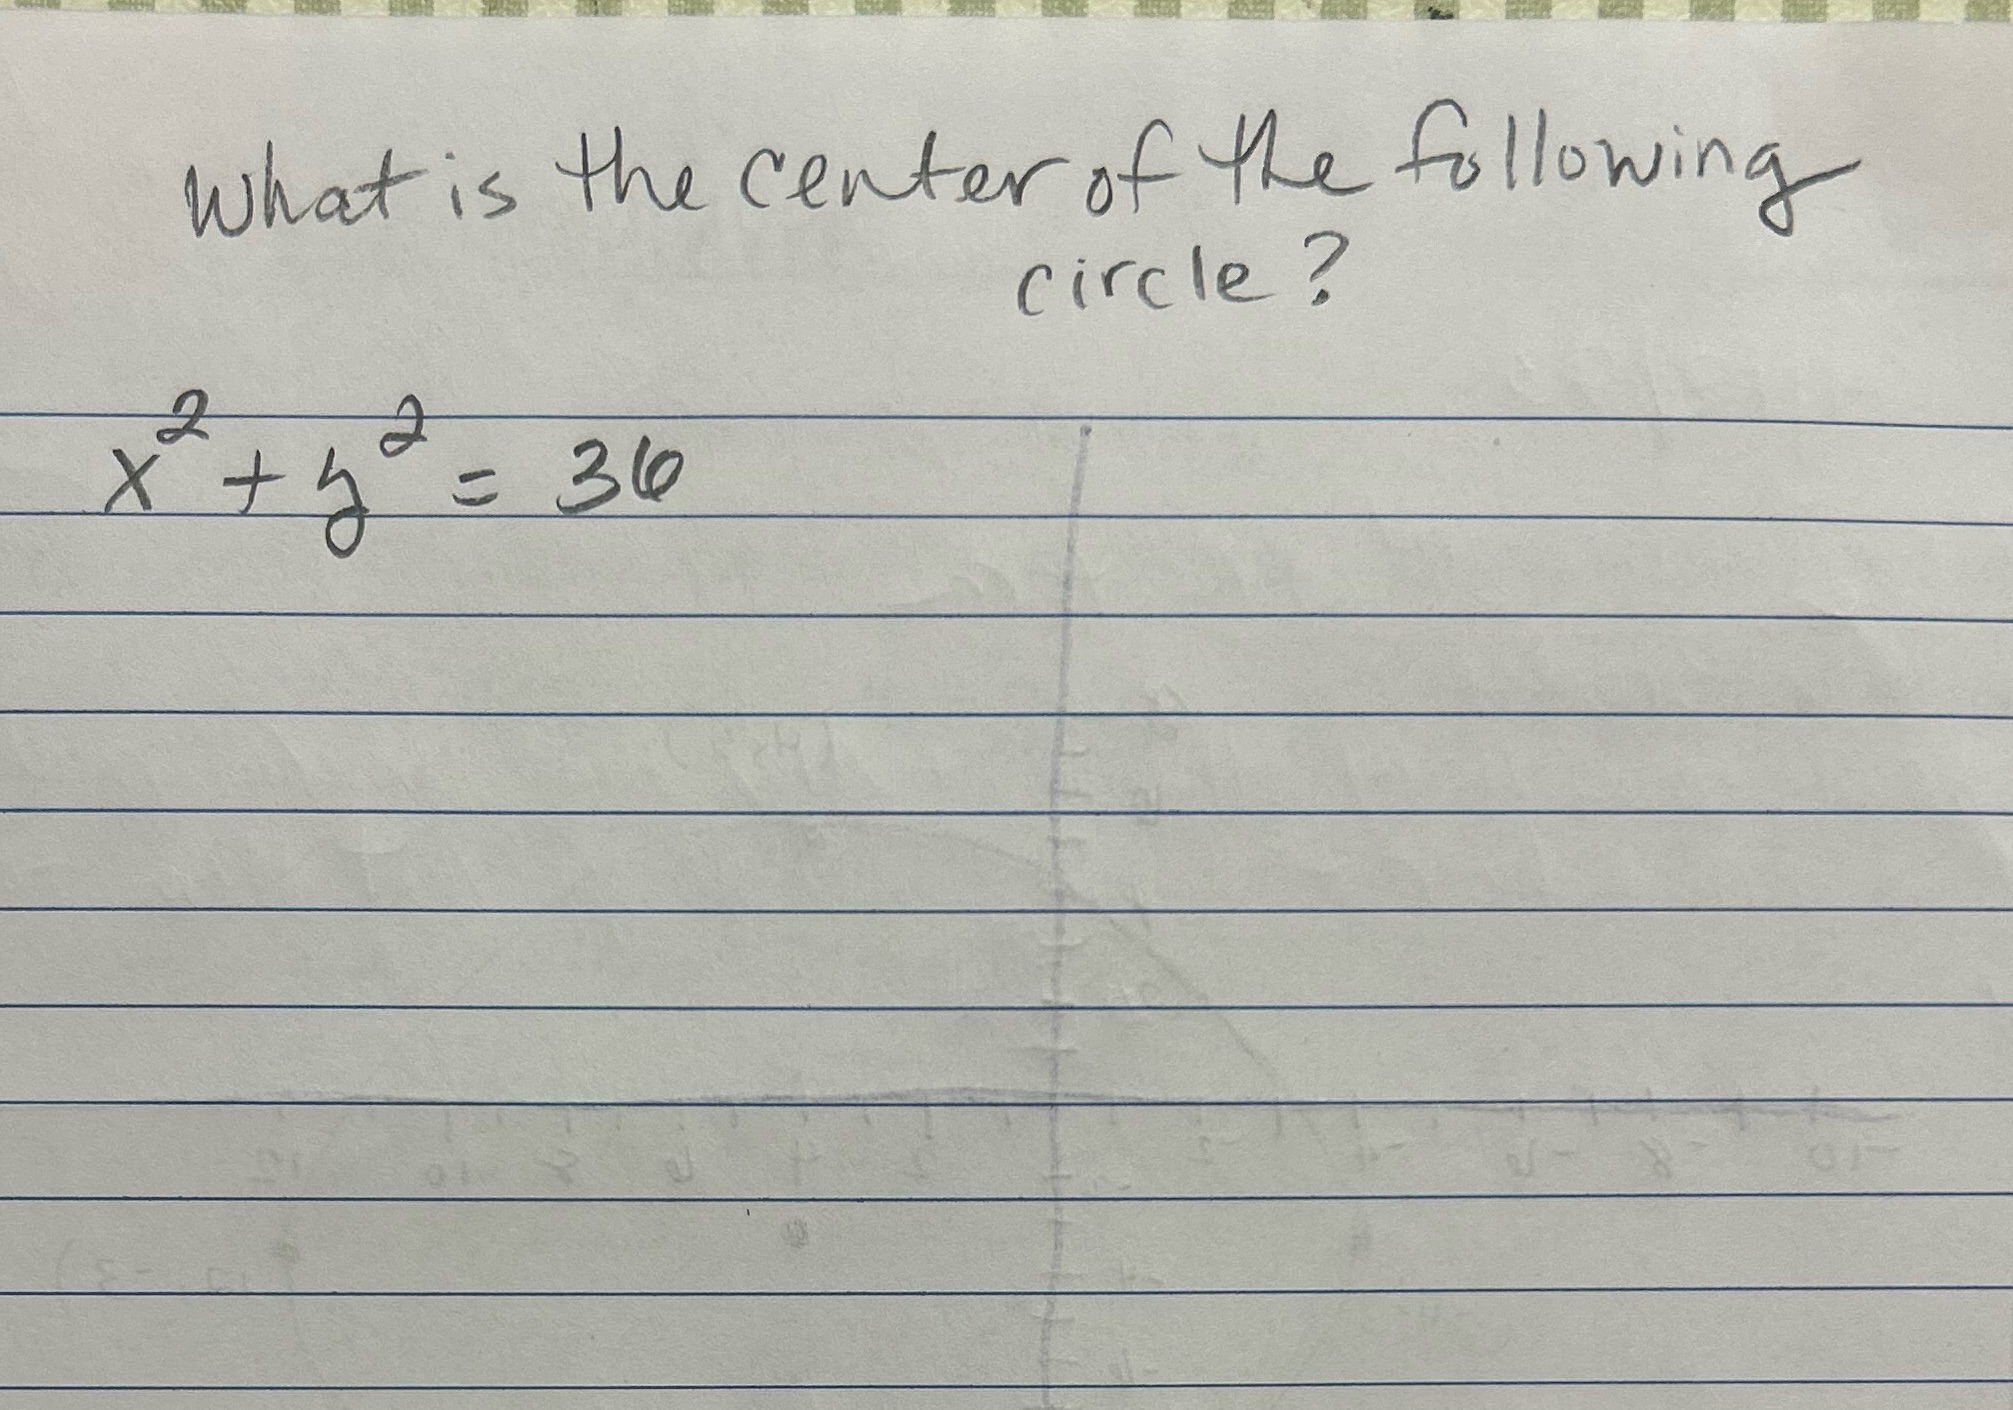 What is the center of the following
circle?
x² + y² = 36